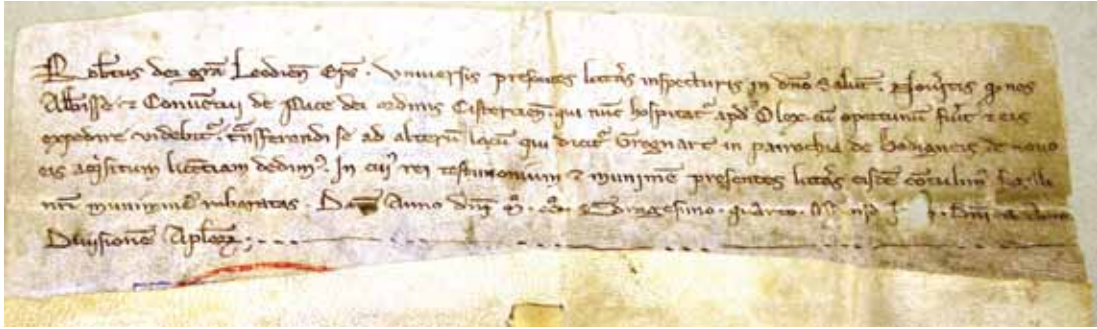 Robtus dei gra Leodien Eps. Universis presentes litteras inspecturis in dno Salute. Noveritis q nos
Abbisse et Conventui de Pace dei ordinis Cistercien. qui nuc hospitat apd Olex cu oportunu fuerit et eis
expedire videbit. transferendi se ad alteru locu qui dicit Grognart in parrochia de Hodianeis de novo
eis acqisitum licentiam dedim. In cui rei testimonium et munime presentes litteras eisde cotulim sigilli
nri munimine roboratas. Dat Anno dni M. CC. Quarto.
Divisione Aplorum